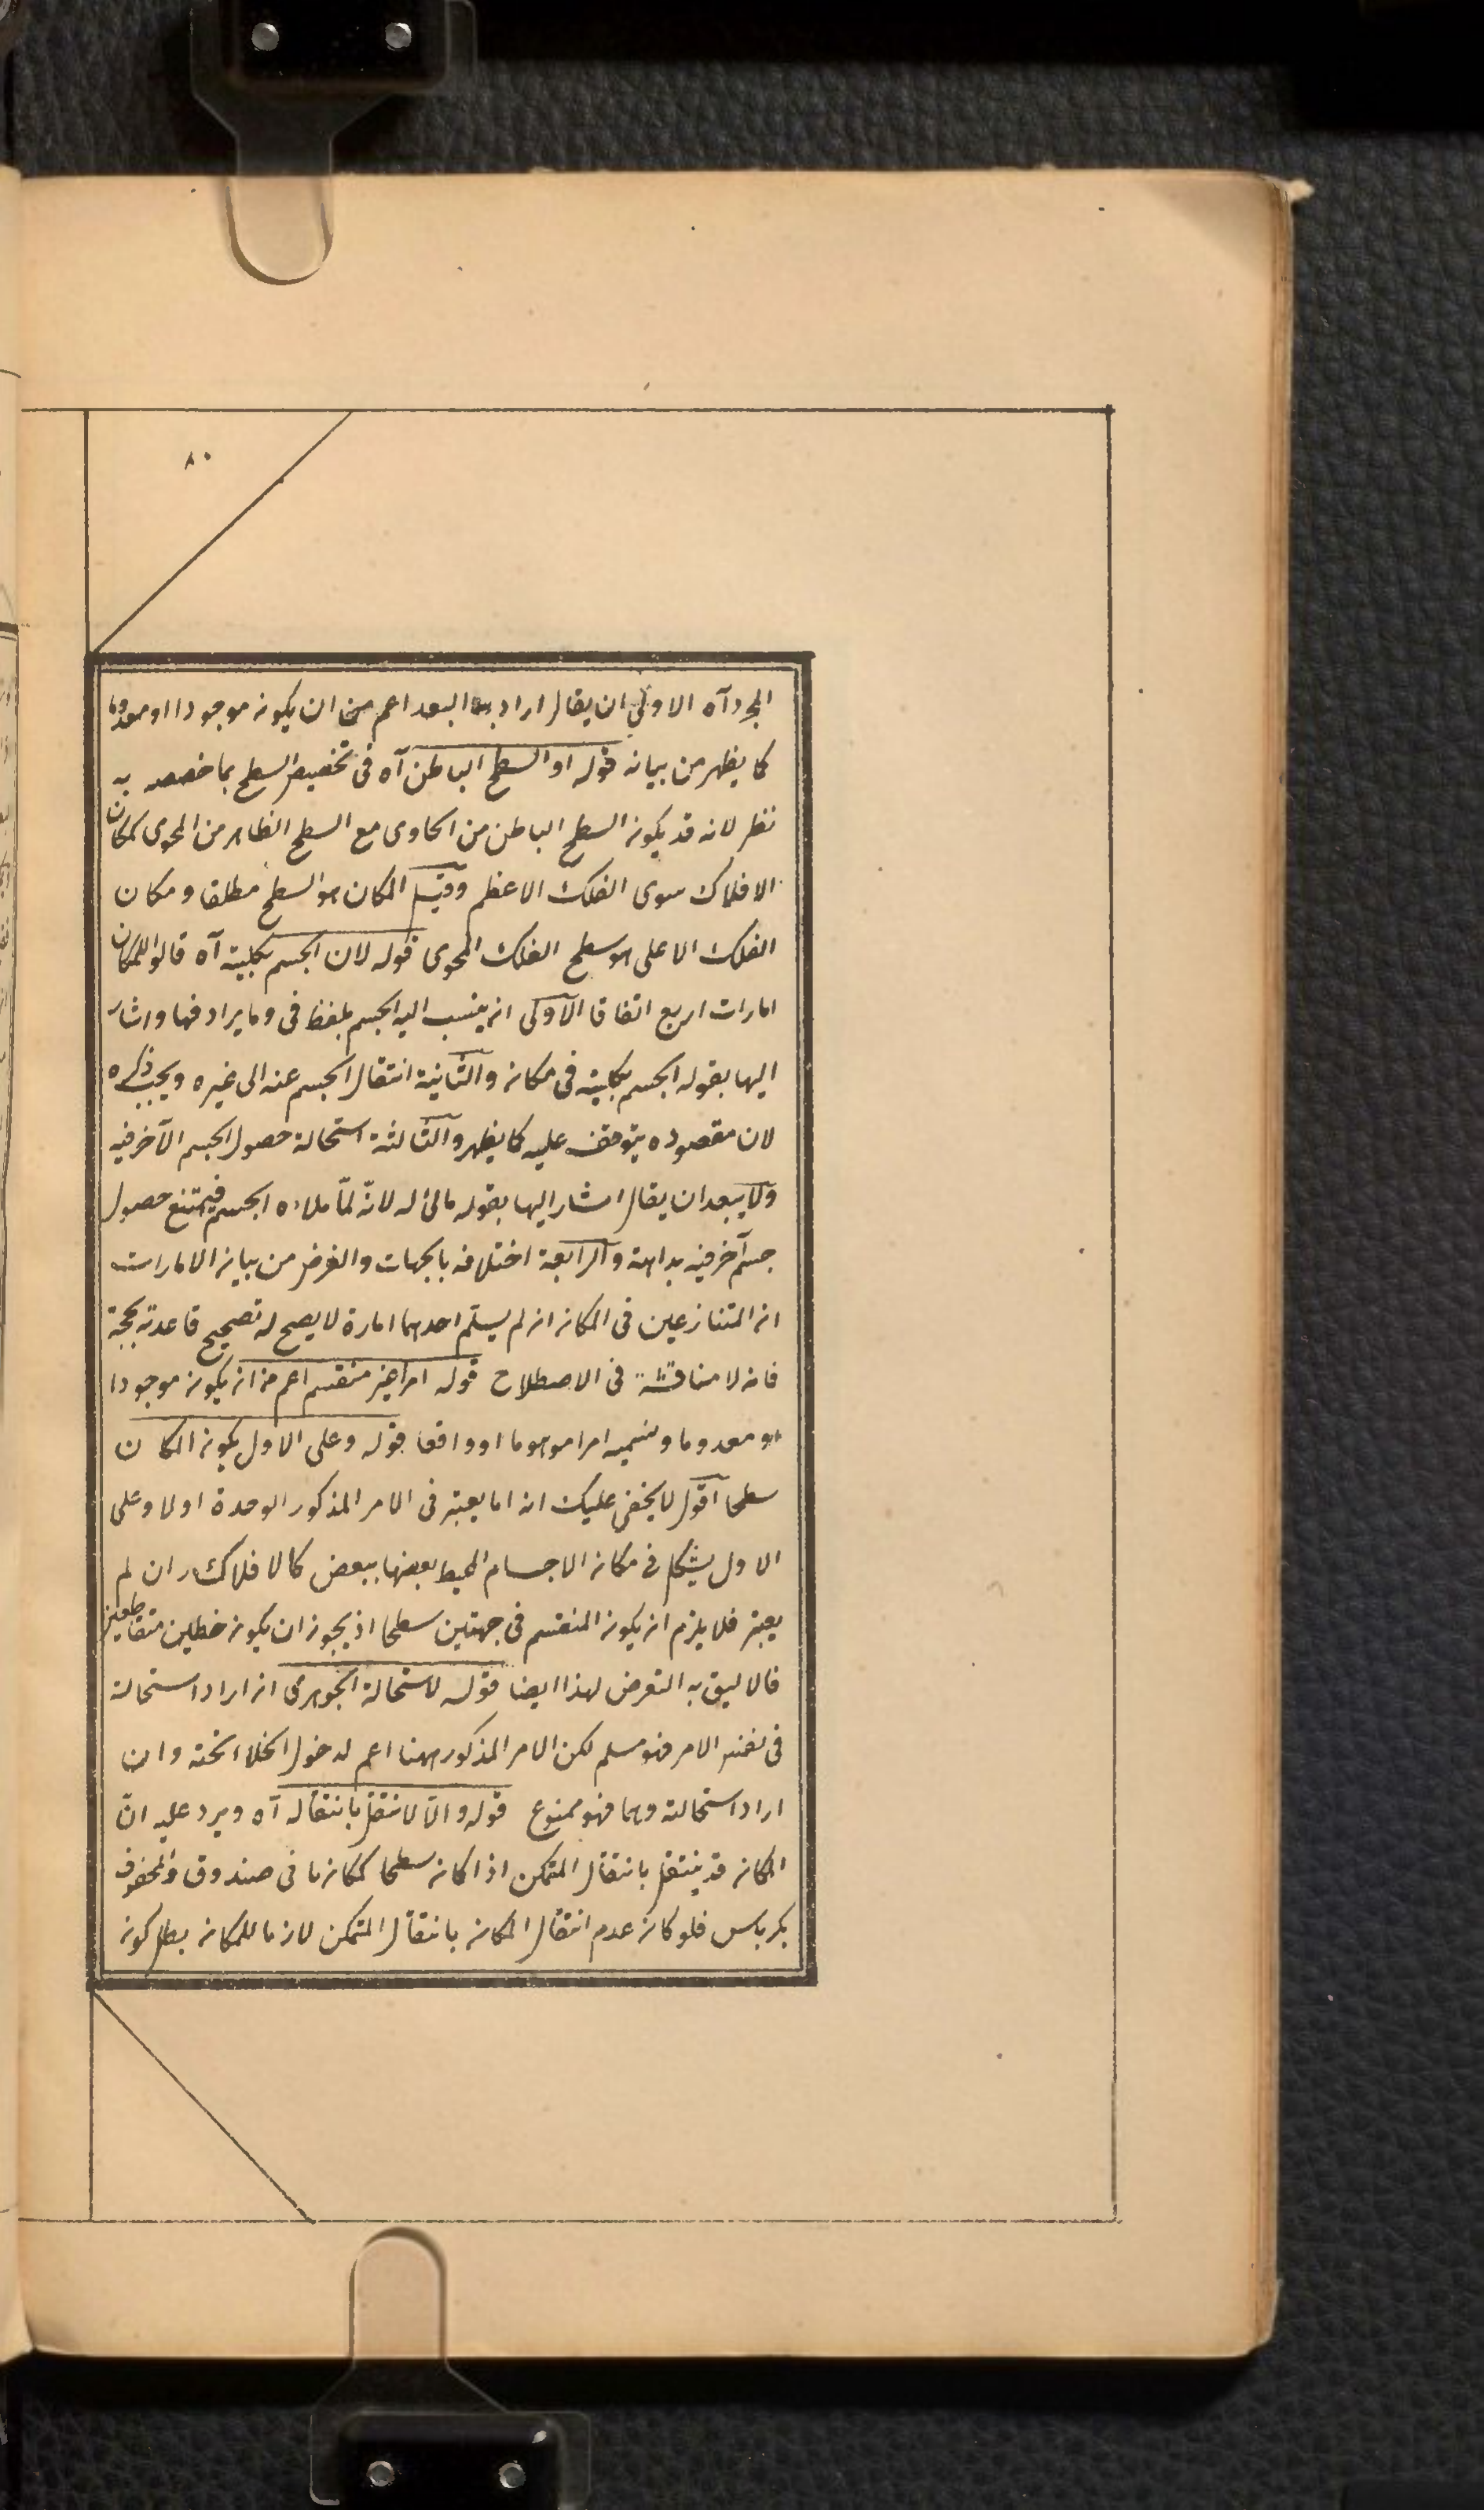 ٨٠
المجرد آه الاولى ان يقال اراد بهذا البعد اعم من ان يكون موجودا او معدوما
كما يظهر من بيانه قوله او السطح الباطن آه فى تخصيص السطح بما خصصه به
نظر لانه قد يكون السطح الباطن من الحاوى مع السطح الظاهر من المحوى كمكان
الافلاك سوى الفلك الاعظم وقيل المكان هو السطح مطلقا ومكان
الفلك الاعلى هو سطح الفلك المحوى قوله لان الجسم بكليته آه قالوا للمكان
امارات اربع اتفاقا الاولى ان ينسب اليه الجسم بلفظ فى وما يرادفها واشار
اليها بقوله الجسم بكليته فى مكانه والثانية انتقال الجسم عنه الى غيره ويجب ذكره
لان مقصوده يتوقف عليه كما يظهر والثالثة استحالة حصول الجسم الآخر فيه
ولا يبعد ان يقال اشار اليها بقوله مالئ له لانه لمّا ملاءه الجسم فيمتنع حصول
جسم آخر فيه بداهة والرابعة اختلافه بالجهات والغرض من بيان الامارات
ان المتنازعين فى المكان ان لم يسلّم احدهما امارة لا يصح له تصحيح قاعدته بحجة
فانه لا مناقشة فى الاصطلاح قوله امر غير منقسم اعم من ان يكون موجودا
او معدوما وتسميه امرا موهوما او واقعا قوله وعلى الاول يكون المكان
سطحا اقول لا يخفى عليك انه اما يعتبر فى الامر المذكور الوحدة اولا وعلى
الاول يشكل فى مكان الاجسام المحيط بعضها ببعض كالافلاك وان لم
يعتبر فلا يلزم ان يكون المنقسم فى جهتين سطحا اذ يجوز ان يكون خطين متقاطعين
فالاليق به التعرض لهذا ايضا قوله لاستحالة الجوهرى ان اراد استحالة
فى نفس الامر فهو مسلم لكن الامر المذكور ههنا اعم لدخول الخلا تحته وان
اراد استحالته وهما فهو ممنوع قوله والّا لانتقل بانتقاله آه ويرد عليه انّ
المكان قد ينتقل بانتقال المتمكن اذا كان سطحا كمكان ما فى صندوق والمحفوف
بكرباس فلو كان عدم انتقال المكان بانتقال المتمكن لازما للمكان بطل كونه